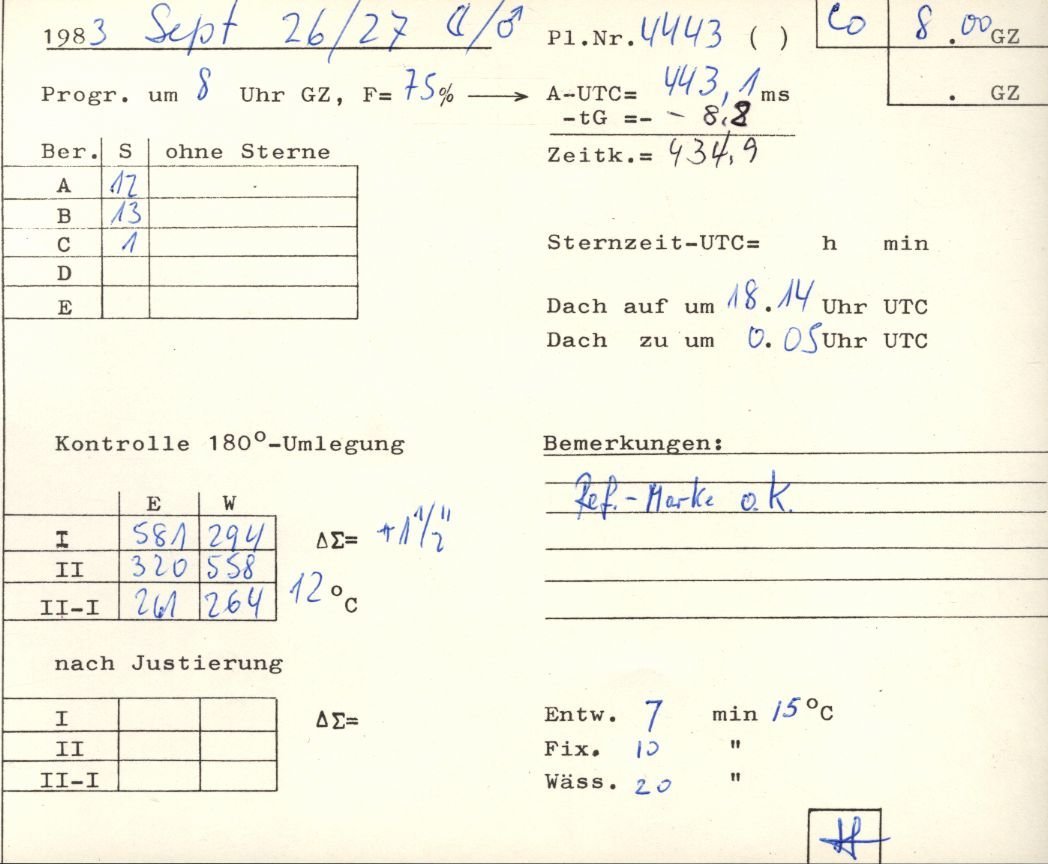 1983 Sept 26/27 ☾/♂ Pl.Nr. 4443 ( ) Co 8.00 GZ
Progr. um 8 Uhr GZ, F= 75% → A-UTC= 443,1 ms . GZ
-tG =- - 8,8
Zeitk.= 434,9
Ber. S ohne Sterne
A 12
B 13
C 1
D
E
Sternzeit-UTC= h min
Dach auf um 18.14 Uhr UTC
Dach zu um 0.05 Uhr UTC
Kontrolle 180°-Umlegung
E W
I 581 294 ΔΣ= +1 1/2"
II 320 558
II-I 261 264 12 °C
nach Justierung
I ΔΣ=
II
II-I
Bemerkungen:
Ref.-Marke o.K.
Entw. 7 min 15 °C
Fix. 10 "
Wäss. 20 "